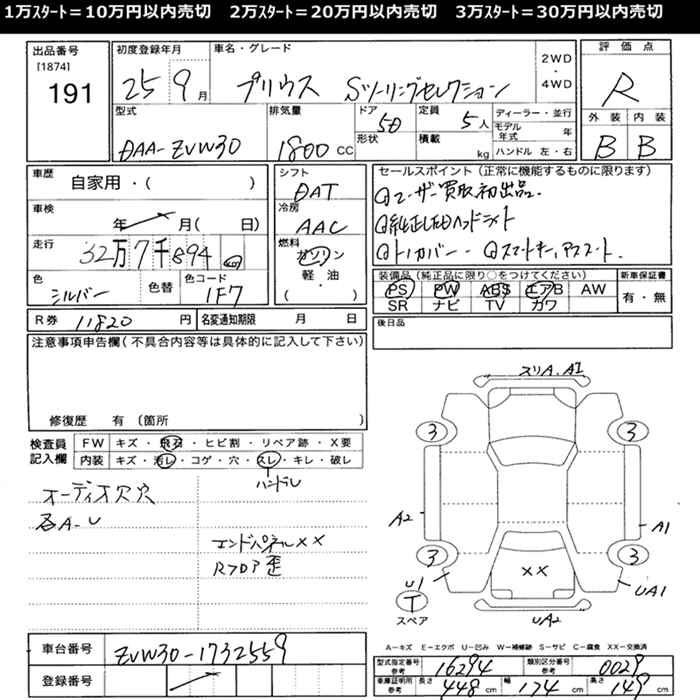 1万ｽﾀｰﾄ＝10万円以内売切　2万ｽﾀｰﾄ＝20万円以内売切　3万ｽﾀｰﾄ＝30万円以内売切
出品番号
[1874]
191
初度登録年月
25 9月
車名・グレード
プリウス Sツーリングセレクション
2WD
・
4WD
評価点
R
型式
DAA-ZVW30
排気量
1800 CC
ドア
5D
形状
定員
5人
積載
kg
ディーラー・並行
モデル年式 年
ハンドル 左・右
外装 内装
B B
車歴
自家用・( )
車検
年 月( 日)
走行
32万7千894
色
シルバー
色替
色コード
1F7
シフト
DAT
冷房
AAC
燃料
ガソリン
軽・油
( )
セールスポイント (正常に機能するものに限ります)
①ユーザー買取初出品。
①純正LEDヘッドライト
①トノカバー・ ①スマートキー,
装備品 (純正品に限り○をつけてください)
PS PW ABS エアB AW
SR ナビ TV カワ
新車保証書
有・無
R券 11820 円
名変通知期限 月 日
後日品
注意事項申告欄(不具合内容等は具体的に記入して下さい)
修復歴 有 (箇所 )
検査員
記入欄
FW キズ・飛石・ヒビ割・リペア跡・X要
内装 キズ・汚レ・コゲ・穴・スレ・キレ・破レ
ハンドル
オーディオ欠穴
各A-U
エンドパネルXX
Rフロア歪
スリA.A1
3 3
A2 A1
3 3
U1
XX
UA1
T
スペア
UA2
A－キズ E－エクボ U－凹み W－補修跡 S－サビ C－腐食 XX－交換済
車台番号
ZVW30-1732559
登録番号
型式指定番号
参考
16294
類別区分番号
参考
0029
車庫証明用
参考
長さ
448 cm
幅
174 cm
高さ
149 cm